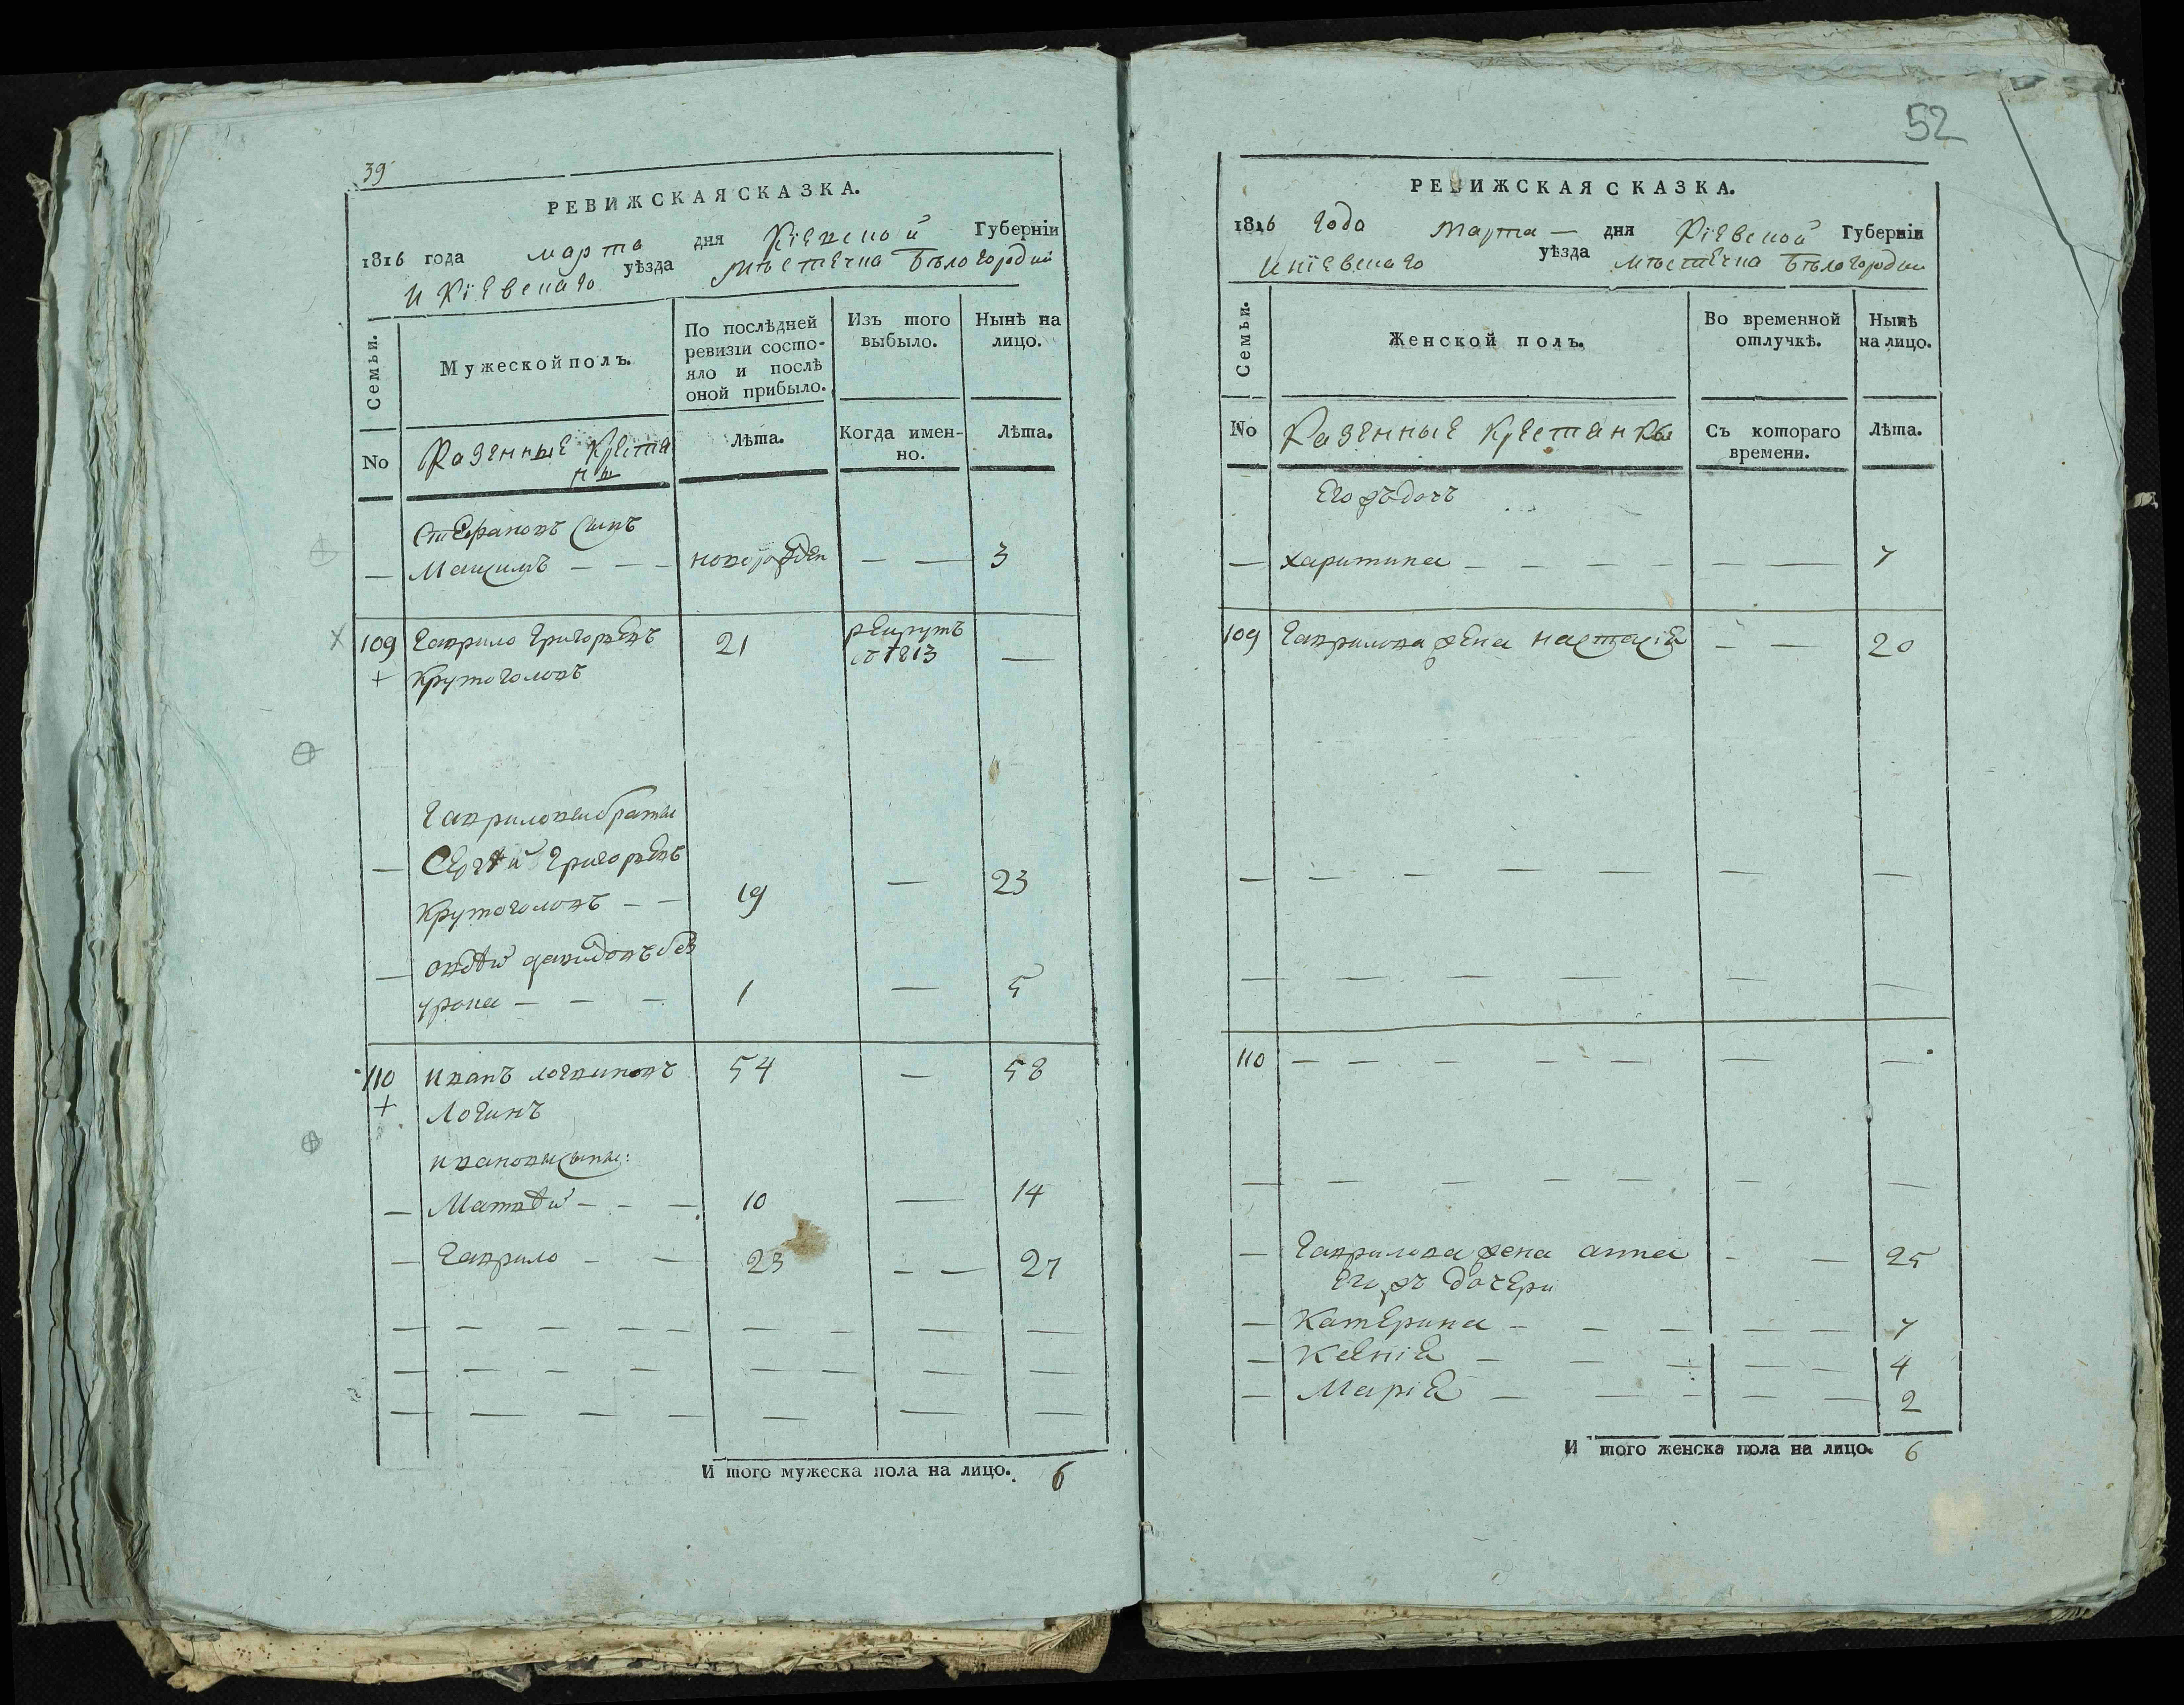 39
РЕВИЖСКАЯ СКАЗКА.
1816 года марта дня Кіевской Губерніи
и Кіевскаго уѣзда мѣстечка Бѣлогородки
Семьи.
Мужеской полъ.
По послѣдней ревизіи состо-
яло и послѣ
оной прибыло.
Изъ того
выбыло.
Нынѣ на
лицо.
No
Казенные Крестя
ны
Лѣта.
Когда имен-
но.
Лѣта.
Стефановъ сынъ
— Максимъ — — — новорожден — — 3
109 Гаврило Григорьевъ 21 рекрутъ
съ 1813 —
+ Крутоголовъ
Гавриловы братья
— Сергѣй Григорьевъ
Крутоголовъ — — 19 — 23
— Авдѣй Давидовъ
1 — 5
110 Иванъ Логвиновъ 54 — 58
+ Логинъ
Ивановы сыны:
— Матвѣй — — — 10 — 14
— Гаврило — — 23 — — 27
И того мужеска пола на лицо. 6
52
РЕВИЖСКАЯ СКАЗКА.
1816 года Марта — дня Кіевской Губерніи
и Кіевскаго уѣзда мѣстечка Бѣлогородки
Семьи.
Женской полъ.
Во временной
отлучкѣ.
Нынѣ
на лицо.
No
Казенные Крестянки
Съ котораго
времени.
Лѣта.
Его жъ дочь
— Харитина — — — — — — 7
109 Гаврилова жена Настасія — — 20
110 — — — — — — —
— Гаврилова жена Анна — — 25
Его жъ дочери
— Катерина — — — — — 7
— Ксенія — — — — — 4
— Марія — — — — — 2
И того женска пола на лицо. 6